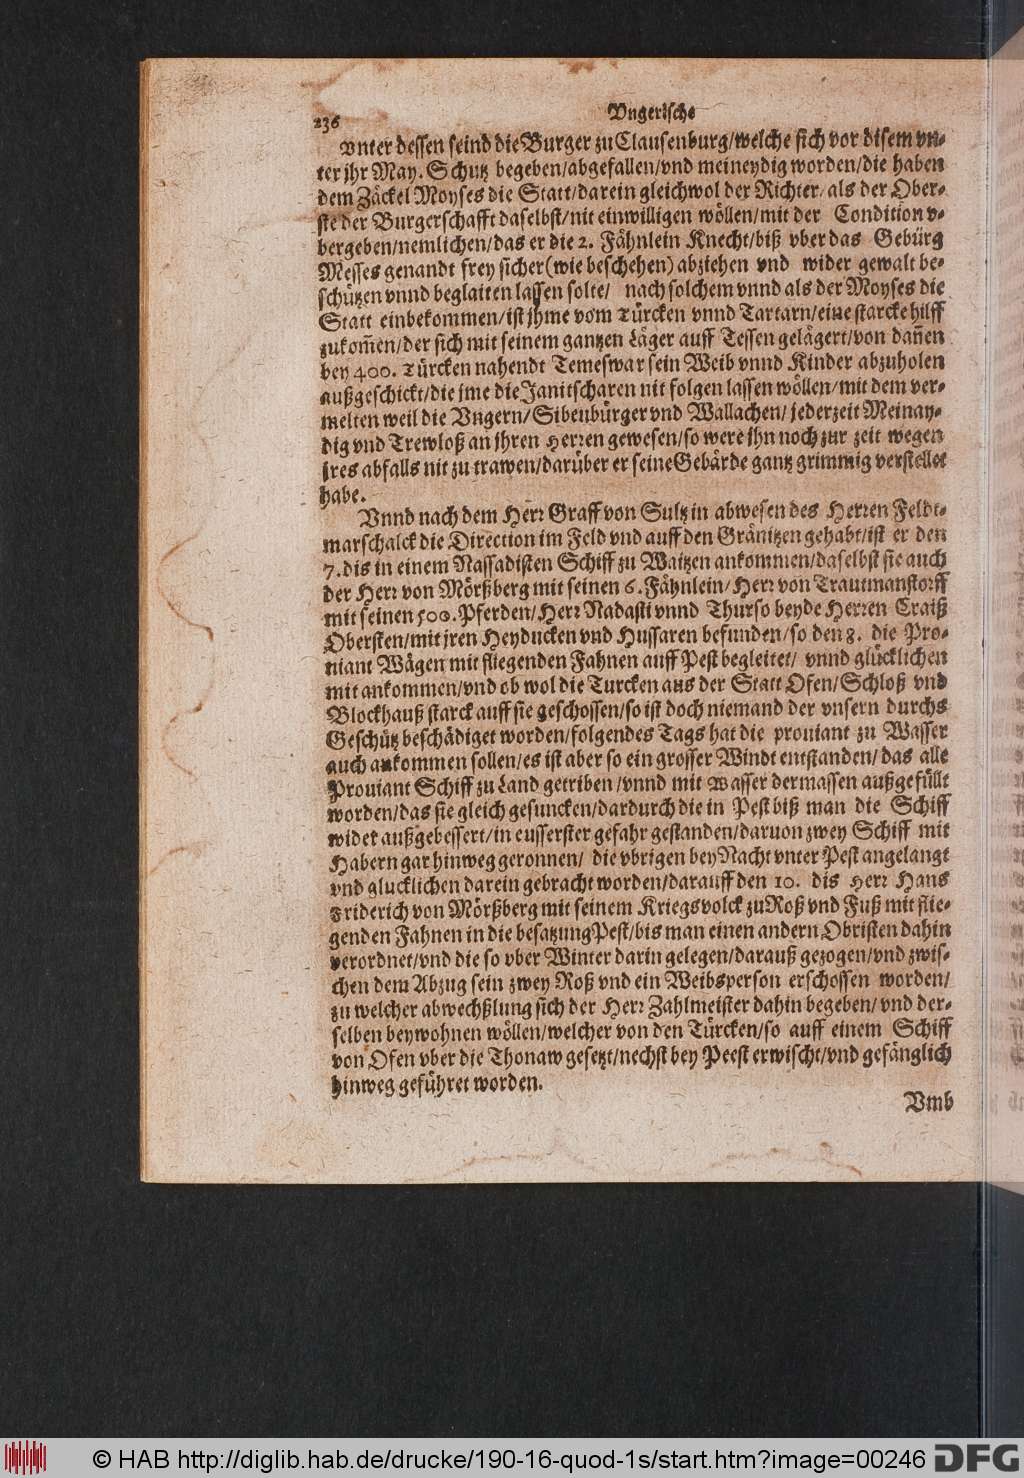 236 Vngerische
Vnter dessen seind die Burger zu Clausenburg/welche sich vor disem vn-
ter jhr May. Schutz begeben/abgefallen/vnd meineydig worden/die haben
dem Zäckel Moyses die Statt/darein gleichwol der Richter/als der Ober-
ste der Burgerschafft daselbst/nit einwilligen wöllen/mit der Condition v-
bergeben/nemlichen/das er die 2. Fähnlein Knecht/biß vber das Gebürg
Messes genandt frey sicher (wie beschehen) abziehen vnd wider gewalt be-
schützen vnnd beglaiten lassen solte/ nach solchem vnnd als der Moyses die
Statt einbekommen/ist jhme vom Türcken vnnd Tartarn/eine starcke hilff
zukom̄en/der sich mit seinem gantzen Läger auff Tessen gelägert/von dan̄en
bey 400. Türcken nahendt Temeswar sein Weib vnnd Kinder abzuholen
außgeschickt/die jme die Janitscharen nit folgen lassen wöllen/mit dem ver-
melten weil die Vngern/Sibenbürger vnd Wallachen/jederzeit Meinay-
dig vnd Trewloß an jhren Herren gewesen/so were jhn noch zur zeit wegen
jres abfalls nit zu trawen/darüber er seine Gebärde gantz grimmig verstellet
habe.
Vnnd nach dem Herr Graff von Sultz in abwesen des Herren Feldt-
marschalck die Direction im Feld vnd auff den Gränitzen gehabt/ist er den
7. dis in einem Nassadisten Schiff zu Waitzen ankommen/daselbst sie auch
der Herr von Mörßberg mit seinen 6. Fähnlein/Herr von Trautmanstorff
mit seinen 500. Pferden/Herr Nadasti vnnd Thurso beyde Herren Craiß
Obersten/mit jren Heyducken vnd Hussaren befunden/so den 8. die Pro-
uiant Wägen mit fliegenden Fahnen auff Pest begleitet/ vnnd glücklichen
mit ankommen/vnd ob wol die Turcken aus der Statt Ofen/Schloß vnd
Blockhauß starck auff sie geschossen/so ist doch niemand der vnsern durchs
Geschütz beschädiget worden/folgendes Tags hat die prouiant zu Wasser
auch ankommen sollen/es ist aber so ein grosser Windt entstanden/das alle
Prouiant Schiff zu Land getriben/vnnd mit Wasser dermassen außgefüllt
worden/das sie gleich gesuncken/dardurch die in Pest biß man die Schiff
wider außgebessert/in eusserster gefahr gestanden/daruon zwey Schiff mit
Habern gar hinweg geronnen/ die vbrigen bey Nacht vnter Pest angelangt
vnd glucklichen darein gebracht worden/darauff den 10. dis Herr Hans
Friderich von Mörßberg mit seinem Kriegsvolck zu Roß vnd Fuß mit flie-
genden Fahnen in die besatzung Pest/bis man einen andern Obristen dahin
verordnet/vnd die so vber Winter darin gelegen/darauß gezogen/vnd zwis-
chen dem Abzug sein zwey Roß vnd ein Weibsperson erschossen worden/
zu welcher abwechßlung sich der Herr Zahlmeister dahin begeben/vnd der-
selben beywohnen wöllen/welcher von den Türcken/so auff einem Schiff
von Ofen vber die Thonaw gesetzt/nechst bey Peest erwischt/vnd gefänglich
hinweg geführet worden.
Vmb
© HAB http://diglib.hab.de/drucke/190-16-quod-1s/start.htm?image=00246 DFG